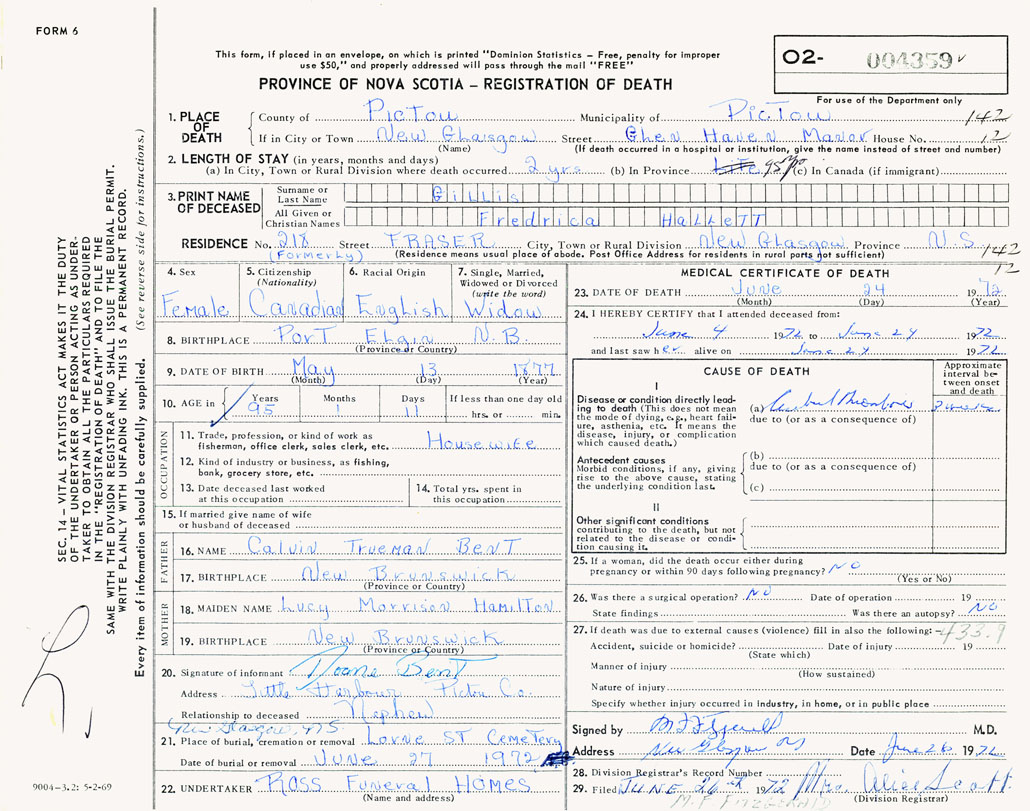 FORM 6
This form, if placed in an envelope, on which is printed "Dominion Statistics – Free, penalty for improper
use $50," and properly addressed will pass through the mail "FREE"
PROVINCE OF NOVA SCOTIA – REGISTRATION OF DEATH
O2- 004359
For use of the Department only
1. PLACE OF DEATH
County of PicTou Municipality of PicTou 142
If in City or Town New Glasgow Street Glen Haven Manor House No. 12
(Name) (If death occurred in a hospital or institution, give the name instead of street and number)
2. LENGTH OF STAY (in years, months and days)
(a) In City, Town or Rural Division where death occurred 2 yrs (b) In Province Life 95 (c) In Canada (if immigrant)
3. PRINT NAME OF DECEASED
Surname or Last Name Gillis
All Given or Christian Names Fredrica HalleTT
RESIDENCE No. 218 Street FRASER City, Town or Rural Division New Glasgow Province N.S. 142
(Formerly) (Residence means usual place of abode. Post Office Address for residents in rural parts not sufficient) 12
4. Sex Female
5. Citizenship (Nationality) Canadian
6. Racial Origin English
7. Single, Married, Widowed or Divorced (write the word) Widow
8. BIRTHPLACE PorT Elgin N.B.
(Province or Country)
9. DATE OF BIRTH May 13 1877
(Month) (Day) (Year)
10. AGE in Years 95 Months 1 Days 11 If less than one day old hrs. or min.
OCCUPATION
11. Trade, profession, or kind of work as fisherman, office clerk, sales clerk, etc. Housewife
12. Kind of industry or business, as fishing, bank, grocery store, etc.
13. Date deceased last worked at this occupation
14. Total yrs. spent in this occupation
15. If married give name of wife or husband of deceased
FATHER
16. NAME Calvin Trueman BenT
17. BIRTHPLACE New Brunswick
(Province or Country)
MOTHER
18. MAIDEN NAME Lucy Morrison HamilTon
19. BIRTHPLACE New Brunswick
(Province or Country)
20. Signature of informant Doane BenT
Address Little Harbour Pictou Co.
Relationship to deceased Nephew
New Glasgow, N.S.
21. Place of burial, cremation or removal Lorne ST CemeTery
Date of burial or removal June 27 1972
22. UNDERTAKER Ross Funeral Homes
(Name and address)
MEDICAL CERTIFICATE OF DEATH
23. DATE OF DEATH June 24 1972
(Month) (Day) (Year)
24. I HEREBY CERTIFY that I attended deceased from:
June 4 1972 to June 24 1972
and last saw her alive on June 24 1972
CAUSE OF DEATH
Approximate interval between onset and death
I
Disease or condition directly leading to death (This does not mean the mode of dying, e.g., heart failure, asthenia, etc. It means the disease, injury, or complication which caused death.)
(a)
due to (or as a consequence of)
Antecedent causes
Morbid conditions, if any, giving rise to the above cause, stating the underlying condition last.
(b)
due to (or as a consequence of)
(c)
II
Other significant conditions
contributing to the death, but not related to the disease or condition causing it.
25. If a woman, did the death occur either during pregnancy or within 90 days following pregnancy? NO
(Yes or No)
26. Was there a surgical operation? NO Date of operation 19
State findings Was there an autopsy? NO
27. If death was due to external causes (violence) fill in also the following: 433.9
Accident, suicide or homicide? Date of injury 19
(State which)
Manner of injury
(How sustained)
Nature of injury
Specify whether injury occurred in industry, in home, or in public place
Signed by M.D.
Address New Glasgow NS Date June 26 1972
28. Division Registrar's Record Number
29. Filed JUNE 26th 1972 Mrs. Alice Scott.
M.F. FITZGERALD (Division Registrar)
SEC. 14 – VITAL STATISTICS ACT MAKES IT THE DUTY
OF THE UNDERTAKER OR PERSON ACTING AS UNDERTAKER
TO OBTAIN ALL THE PARTICULARS REQUIRED
IN THE "REGISTRATION OF DEATH" AND TO FILE THE
SAME WITH THE DIVISION REGISTRAR WHO SHALL ISSUE THE BURIAL PERMIT.
WRITE PLAINLY WITH UNFADING INK. THIS IS A PERMANENT RECORD.
Every item of information should be carefully supplied. (See reverse side for instructions.)
9004-3.2: 5-2-69